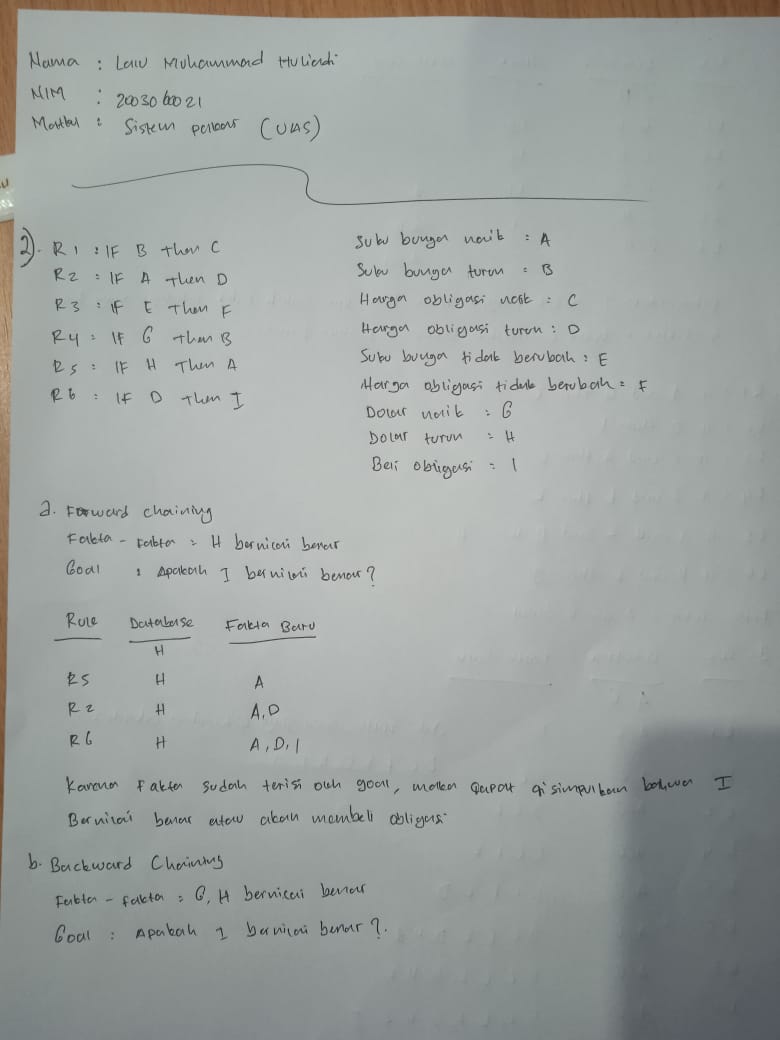 Nama : Lalu Muhammad Huliandi
NIM : 2003060021
Matkul : Sistem pakar (UAS)
2). R1 : IF B then C
R2 : IF A then D
R3 : IF E Then F
R4 : IF G than B
R5 : IF H Then A
R6 : IF D then I
Suku bunga naik : A
Suku bunga turun : B
Harga obligasi naik : C
Harga obligasi turun : D
Suku bunga tidak berubah : E
Harga obligasi tidak berubah = F
Dolar naik : G
Dolar turun : H
Beli obligasi = I
a. Forward chaining
Fakta - Fakta = H bernilai benar
Goal : Apakah I bernilai benar?
Rule Database Fakta Baru
H
R5 H A
R2 H A, D
R6 H A, D, I
Karena Fakta sudah terisi oleh goal, maka dapat disimpulkan bahwa I
Bernilai benar atau akan membeli obligasi
b. Backward Chaining
Fakta - fakta = G, H bernilai benar
Goal : Apakah I bernilai benar?.